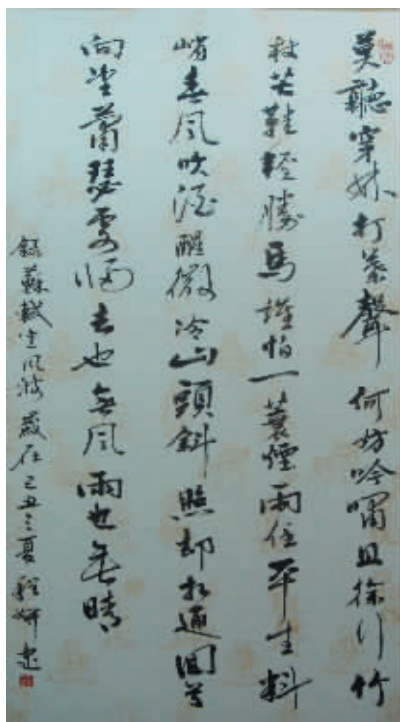 莫聽穿林打葉聲何妨吟嘯且徐行竹
杖芒鞋輕勝馬誰怕一蓑煙雨任平生料
峭春風吹酒醒微冷山頭斜照却相迎回首
向來蕭瑟處歸去也無風雨也無晴
錄蘇軾定風波歲在己丑之夏程妍書